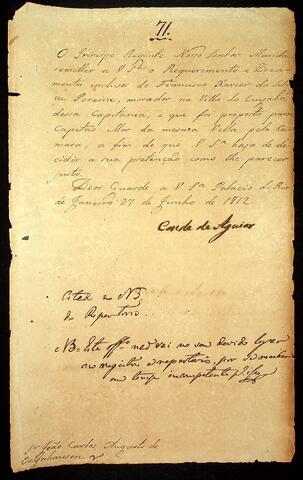 71.
O Principe Regente Nosso Senhor Manda
remetter a V Sª o Requerimento e Docu
mento incluso de Francisco Xavier da Sil
va Pereira, morador na Villa do Cuyabá
dessa Capitania, e que foi proposto para
Capitão Mor da mesma Villa, pela Ca
mara, a fim de que V Sª haja de de
cidir a sua pretenção como lhe parecer
justo.
Deos Guarde a V Sª Palacio do Rio
de Janeiro 27 de Junho de 1812
Conde de Aguiar
Citad no NB
do Repertorio.
NB = Este offº não vai no seu devido lugar
no registro e repertorio, por
em tempo incompetente
Sr João Carlos Augusto de
Oeynhausen